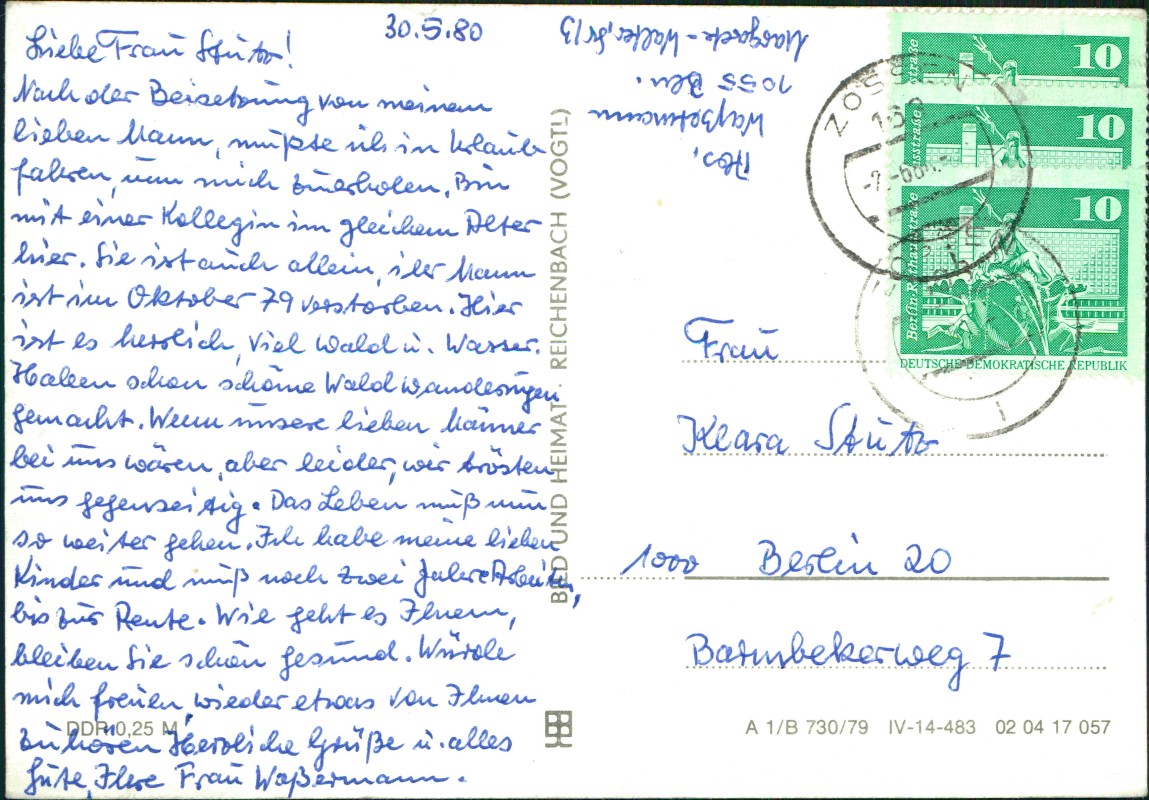 30.5.80
Liebe Frau Stutz!
Nach der Beisetzung von meinem
lieben Mann, mußte ich in Urlaub
fahren, um mich zuerholen. Bin
mit einer Kollegin im gleichem Alter
hier. Sie ist auch allein, ihr Mann
ist im Oktober 79 verstorben. Hier
ist es herrlich, viel Wald u. Wasser.
Haben schon schöne Waldwanderungen
gemacht. Wenn unsere lieben Männer
bei uns wären, aber leider, wir trösten
uns gegenseitig. Das Leben muß nun
so weiter gehen. Ich habe meine lieben
Kinder und muß noch zwei Jahre Arbeiten,
bis zur Rente. Wie geht es Ihnen,
bleiben Sie schön gesund. Würde
mich freuen, wieder etwas von Ihnen
zu hören Herzliche Grüße u. alles
Gute, Ihre Frau Waßermann.
DDR 0,25 M
BILD UND HEIMAT · REICHENBACH (VOGTL)
Abs.
Waßermann
1055 Bln.
Margarete-Walter, Str 13
10
10
10
Berlin-Rathausstraße
DEUTSCHE DEMOKRATISCHE REPUBLIK
ZOSSEN
Frau
Klara Stutz
1000 Berlin 20
Barnsbekerweg 7
A 1/B 730/79 IV-14-483 02 04 17 057